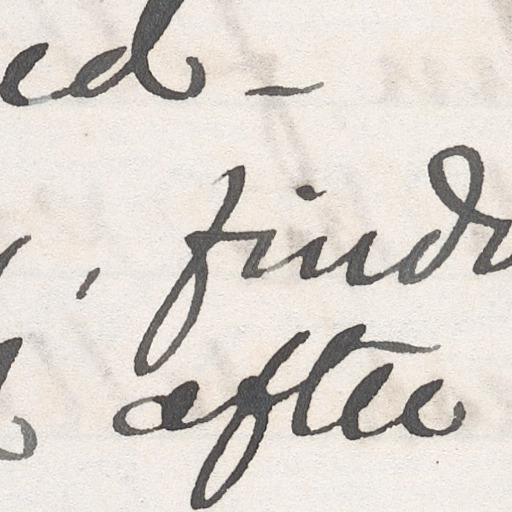 ed -
, find
after